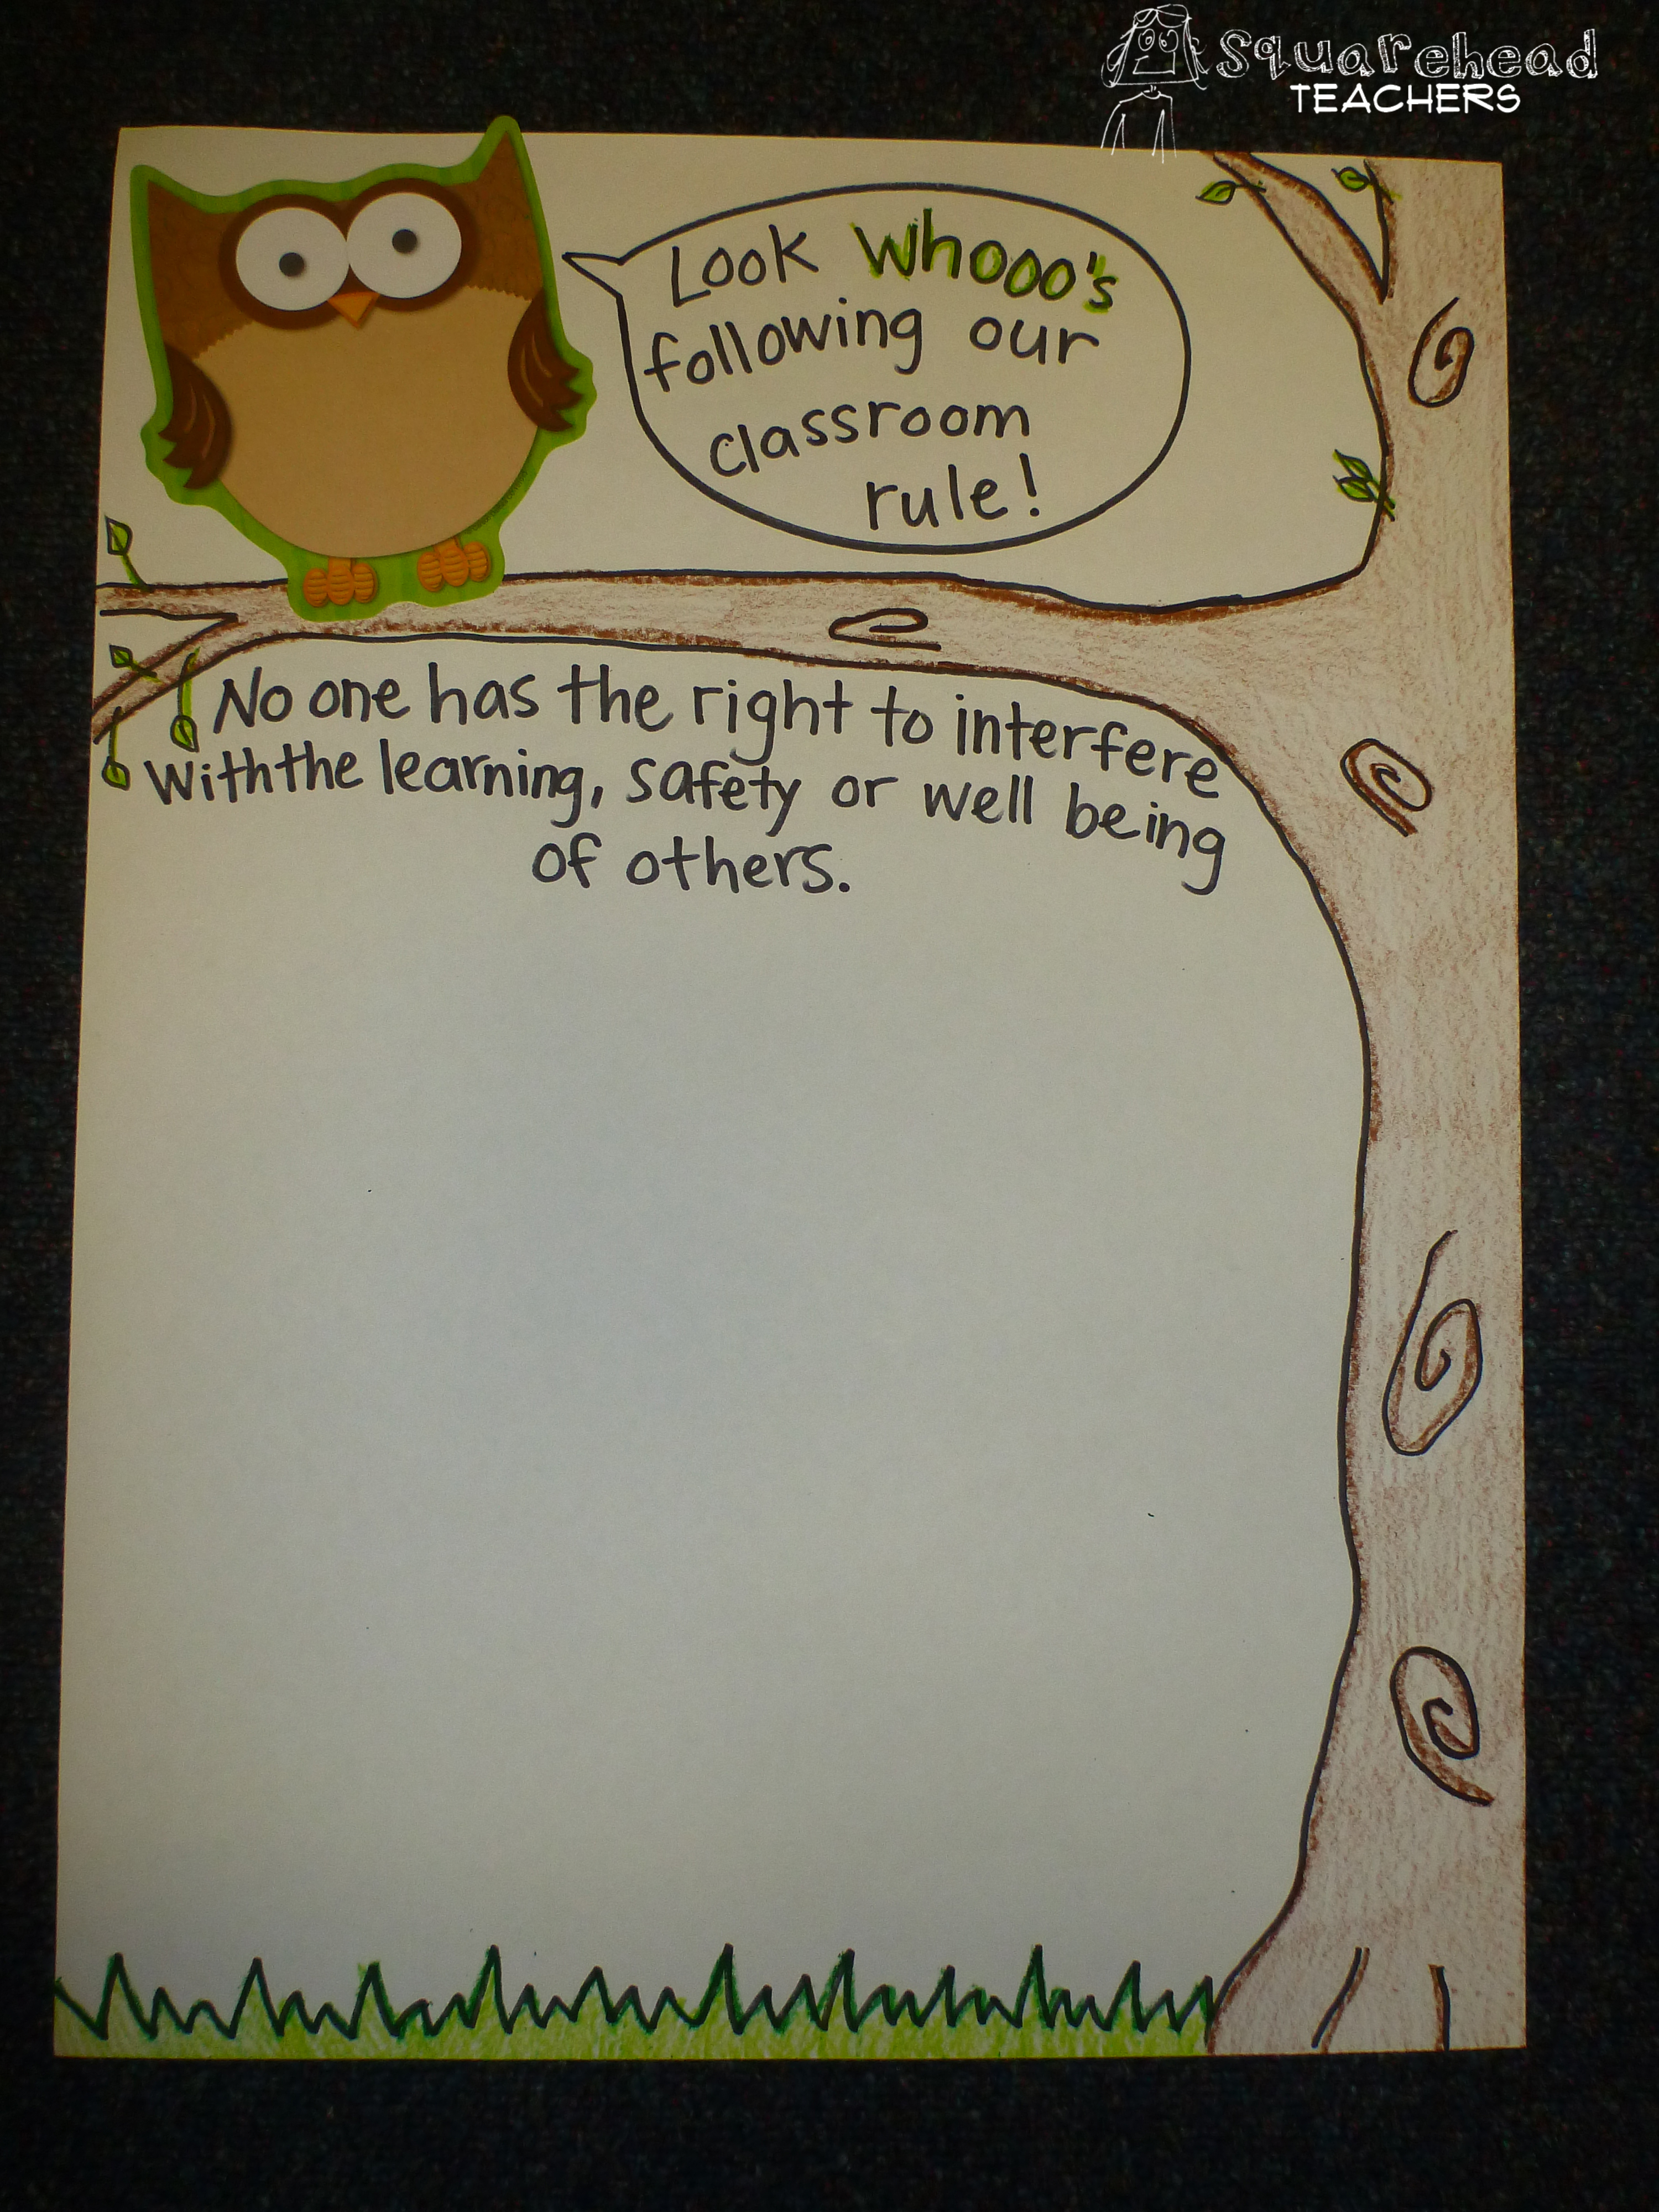 Squarehead
TEACHERS
Look Whooo's
following our
classroom
rule!
No one has the right to interfere
with the learning, safety or well being
of others.